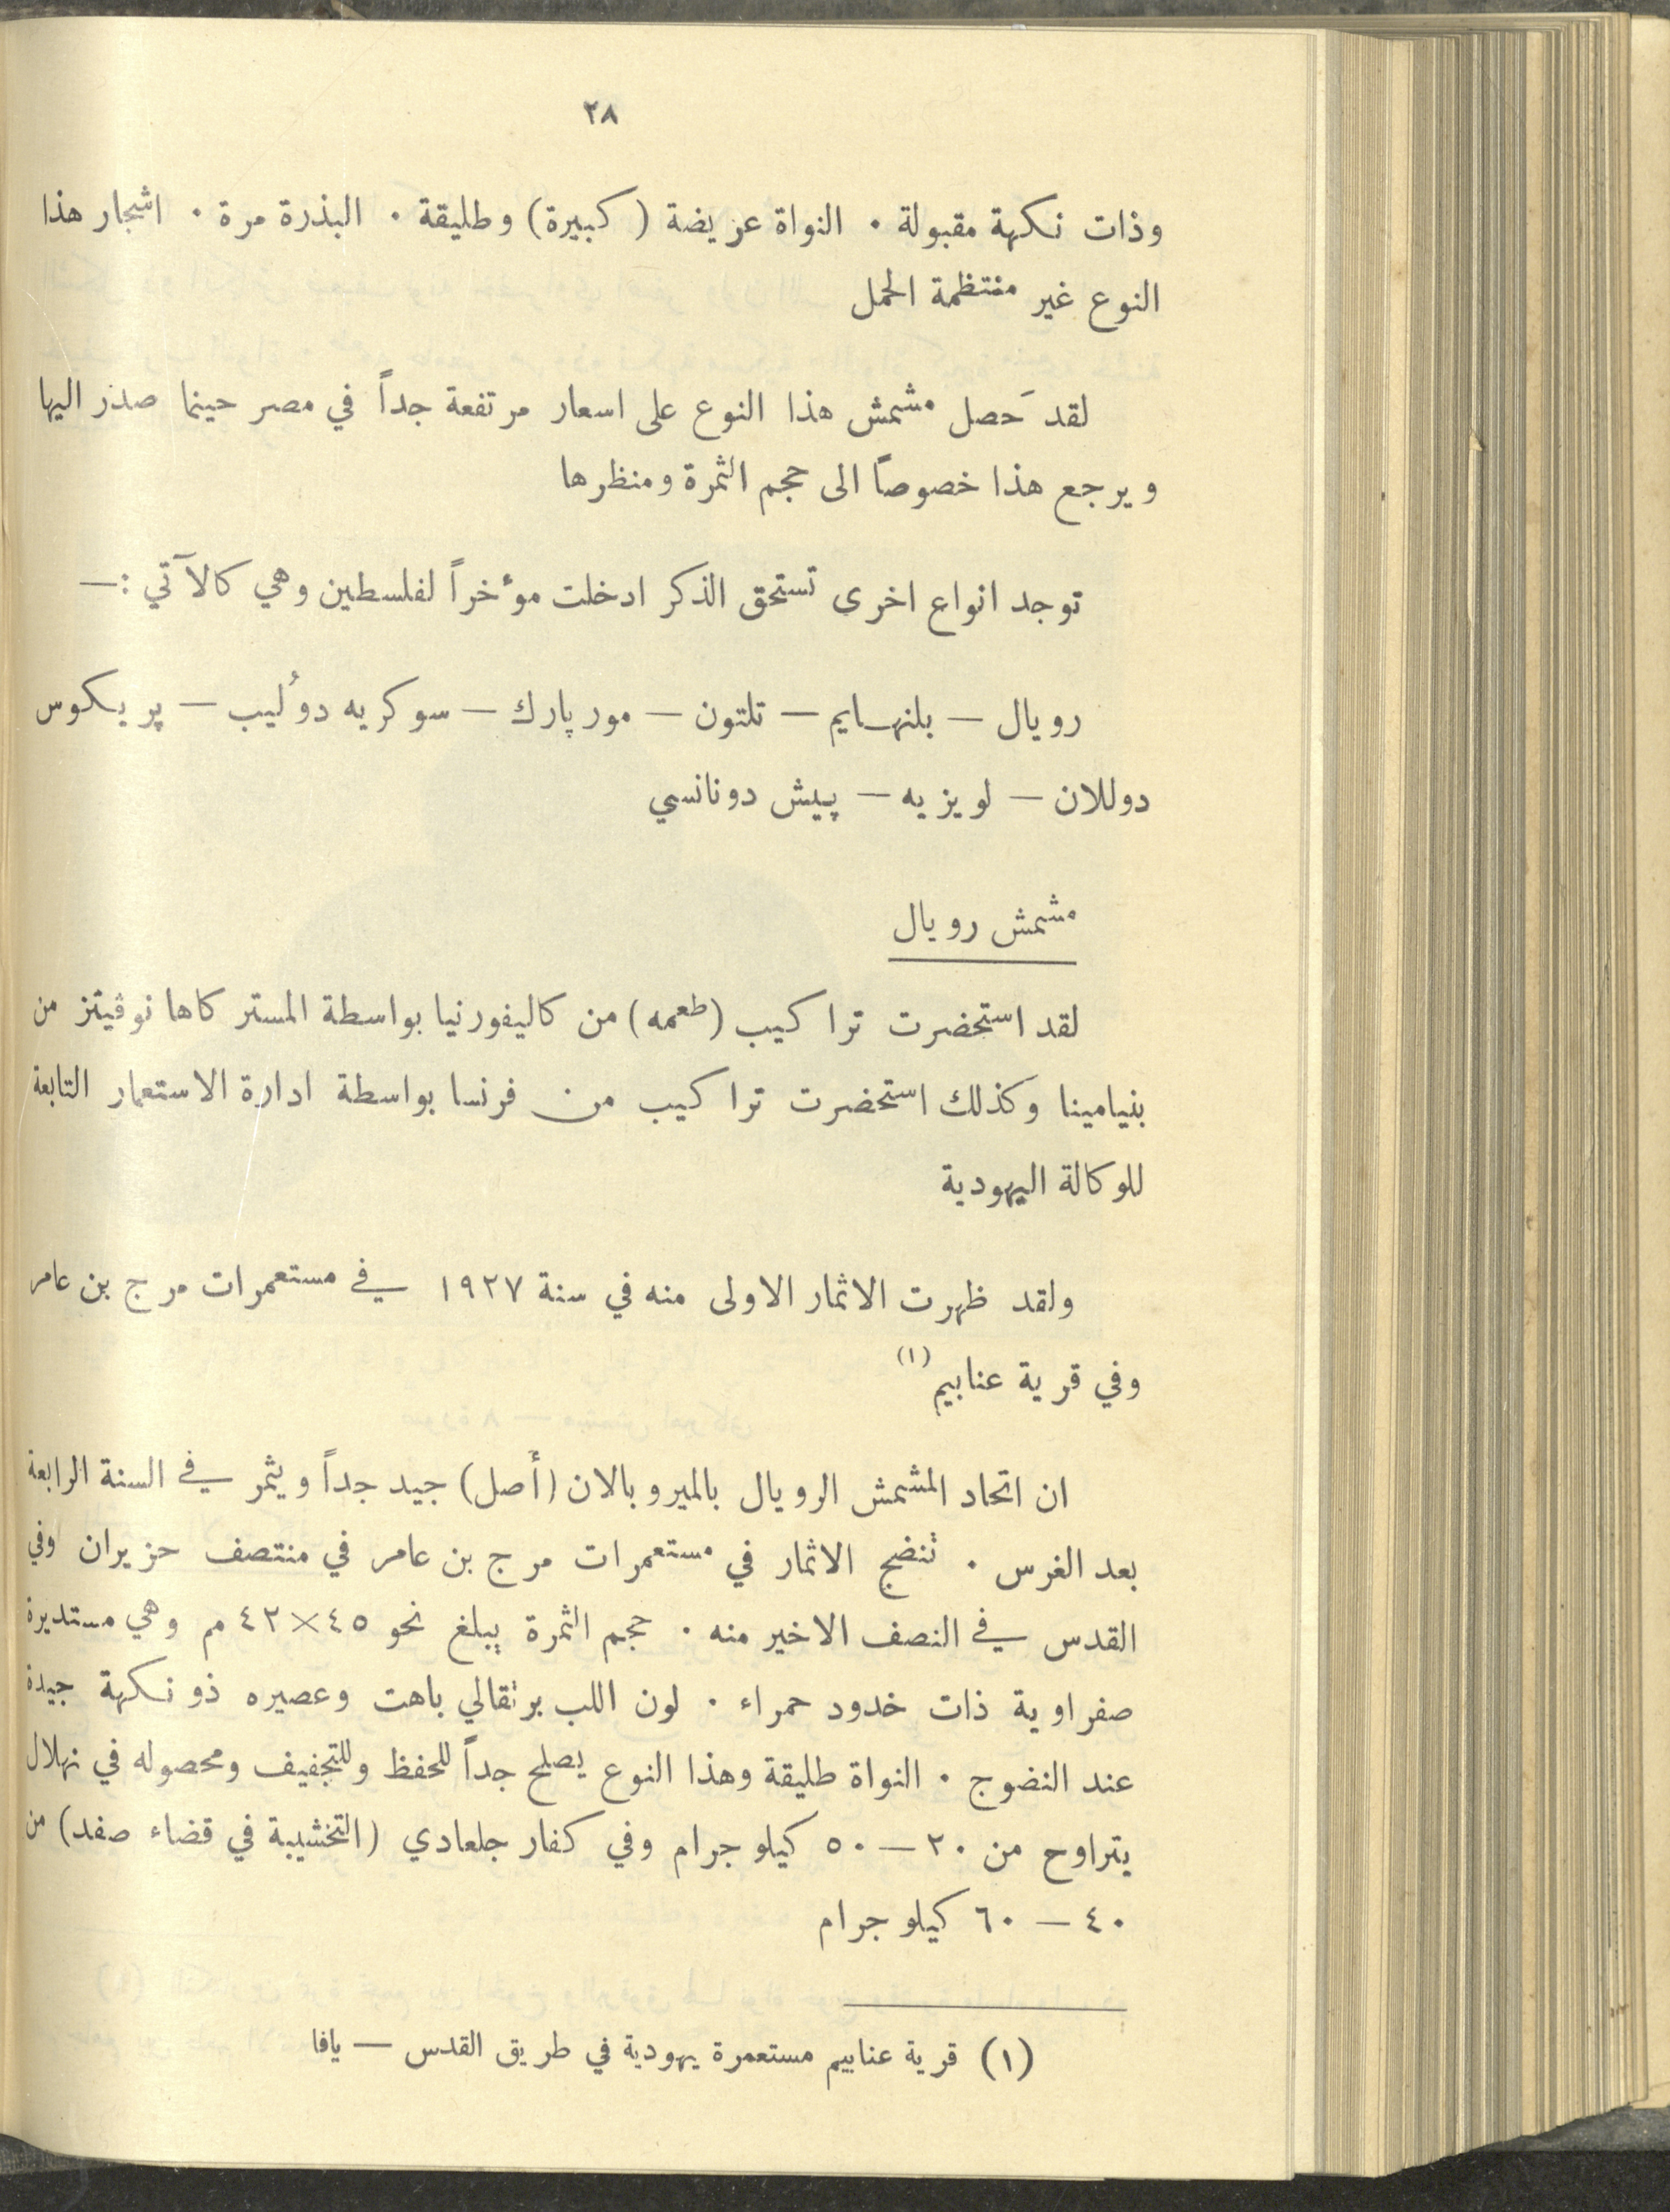 ٢٨
وذات نكهة مقبولة ٠ النواة عريضة (كبيرة) وطليقة ٠ البذرة مرة ٠ اشجار هذا
النوع غير منتظمة الحمل
لقد حَصل مشمش هذا النوع على اسعار مرتفعة جداً في مصر حينما صدر اليها
ويرجع هذا خصوصاً الى حجم الثمرة ومنظرها
توجد انواع اخرى تستحق الذكر ادخلت موٴخراً لفلسطين وهي كالآتي :—
رويال — بلنهايم — تلتون — مور پارك — سوكريه دوُليب — پريكوس
دوللان — لويزيه — پيش دونانسي
مشمش رويال
لقد استحضرت تراكيب (طعمه) من كاليفورنيا بواسطة المستر كاهانوڤيتز من
بنيامينا وكذلك استحضرت تراكيب من فرنسا بواسطة ادارة الاستعمار التابعة
للوكالة اليهودية
ولقد ظهرت الاثمار الاولى منه في سنة ١٩٢٧ في مستعمرات مرج بن عامر
وفي قرية عنابيم (١)
ان اتحاد المشمش الرويال بالميروبالان (أصل) جيد جداً ويثمر في السنة الرابعة
بعد الغرس ٠ تنضج الاثمار في مستعمرات مرج بن عامر في منتصف حزيران وفي
القدس في النصف الاخير منه ٠ حجم الثمرة يبلغ نحو ٤٥×٤٢ م وهي مستديرة
صفراوية ذات خدود حمراء ٠ لون اللب برتقالي باهت وعصيره ذو نكهة جيدة
عند النضوج ٠ النواة طليقة وهذا النوع يصلح جداً للحفظ وللتجفيف ومحصوله في نهلال
يتراوح من ٢٠ — ٥٠ كيلو جرام وفي كفار جلعادي (التخشيبة في قضاء صفد) من
٤٠ — ٦٠ كيلو جرام
(١) قرية عنابيم مستعمرة يهودية في طريق القدس — يافا